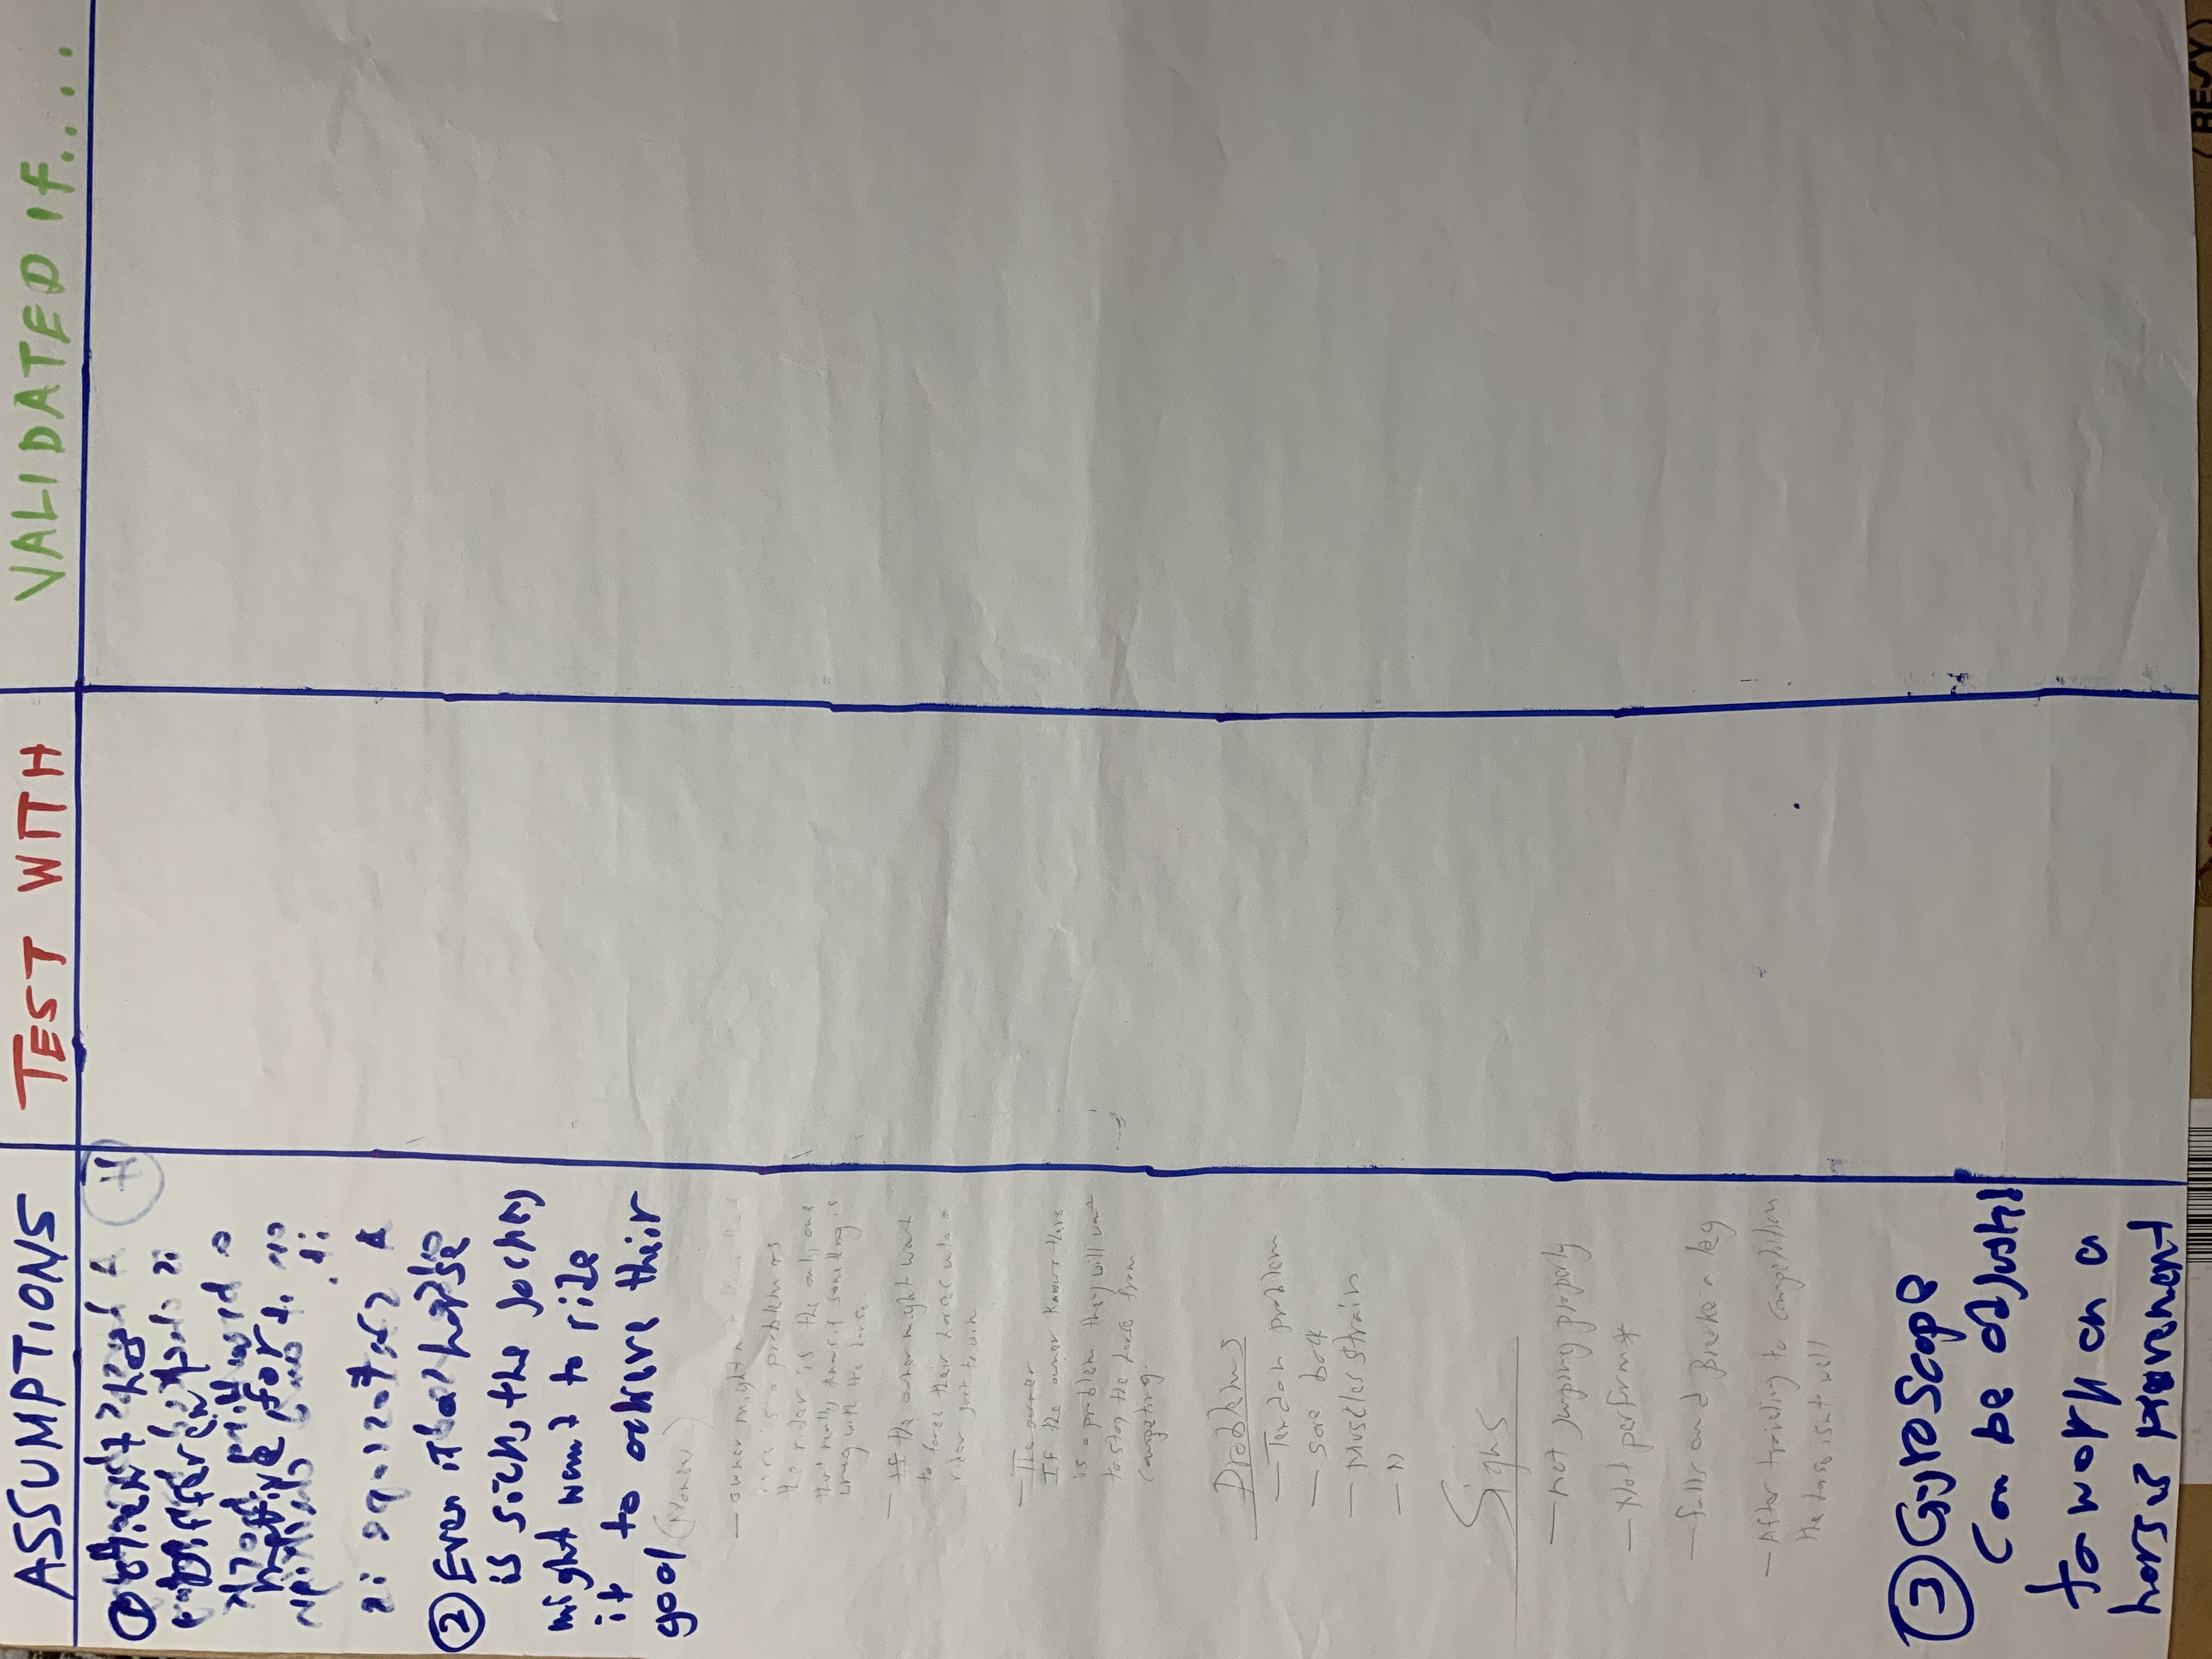 ASSUMPTIONS
TEST WITH
VALIDATED IF....
① client has
Different
motive for
② Even if a horse
is sick, the jockey
might want to ride
it to achieve their
goal (Money)
— owner might
is a problem as
the rider is the only one
that really knows if something is
wrong with the horse
— If the owner might want
to force their horses into a
rider just to win
— The owner
If the owner knows there
is a problem they will want
to stop the horse from
competing.
Problems
— Tendon problem
— Sore back
— Muscles strain
— N
Signs
— not jumping properly
— Not perform*
— falls and Brake a leg
— After traveling to competition
the horse isnt well
③ Gyroscope
can be adjusted
to work on a
horses movement
(RESY)